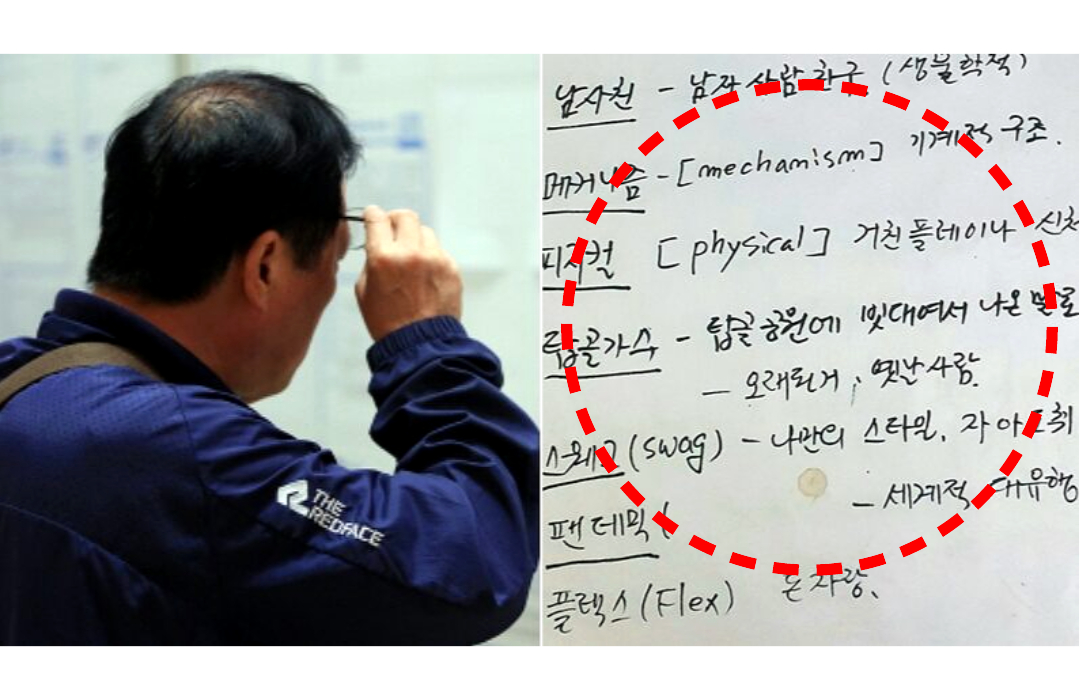 THE
REDFACE
남사친 - 남자 사람 친구 (생물학적)
메커니즘 - [mechamism] 기계적 구조.
피지컬 [physical] 거친 플레이나 신체
탑골가수 - 탑골공원에 빗대여서 나온 말로
- 오래된거, 옛날사람.
스웨그 (swag) - 나만의 스타일, 자아도취
- 세계적 대유행
팬데믹 (
플렉스 (Flex) 돈 자랑.